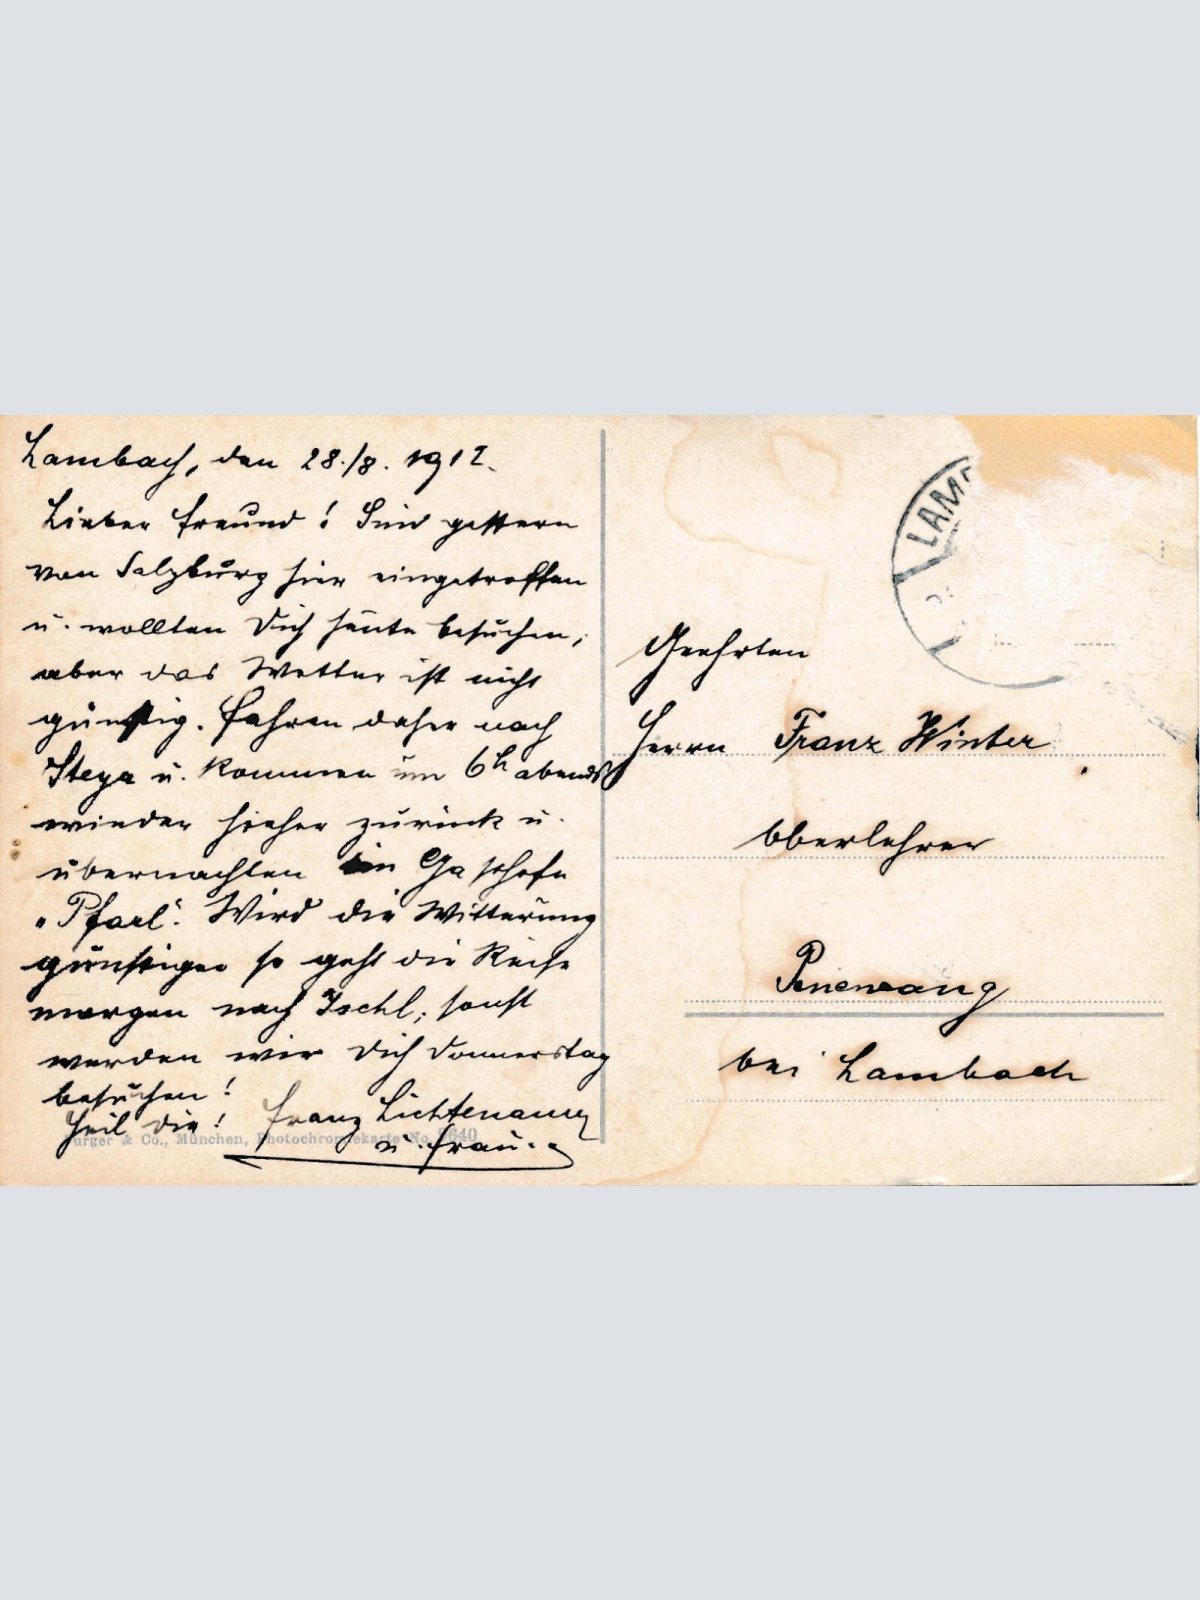 Lambach, den 28./8. 1912.
Lieber Freund! Sind gestern
von Salzburg hier eingetroffen
u. wollten Dich heute besuchen,
aber das Wetter ist nicht
günstig. Fahren daher nach
Steyr u. kommen um 6h abends
wieder hieher zurück u.
übernachten in Gasthofe
"Pfarl". Wird die Witterung
günstiger so geht die Reise
morgen nach Ischl, sonst
werden wir Dich Donnerstag
besuchen!
Heil Dir! Franz
u. Frau.
Purger & Co., München, Photochromiekarte No. 9640
LAMB
Geehrten
Herrn Franz Winter
Oberlehrer
Penewang
bei Lambach